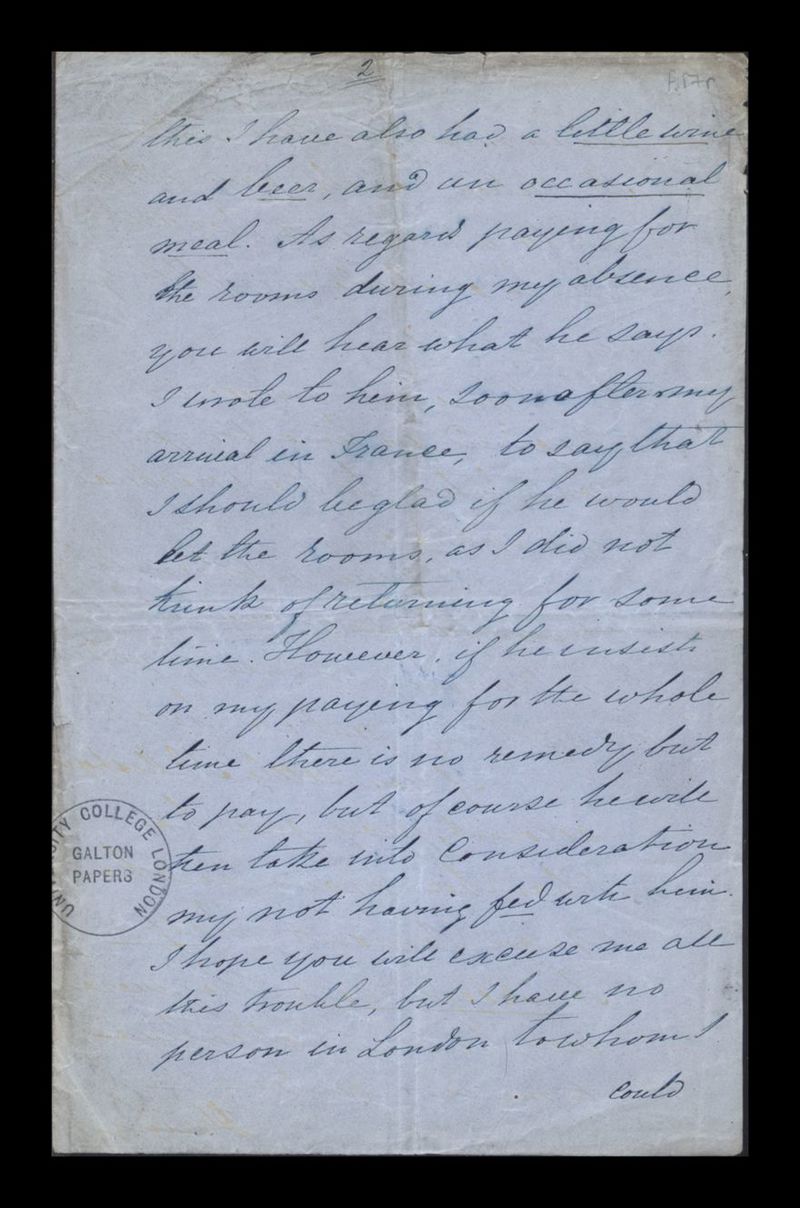 2
this I have also had a little wine
and beer, and an occasional
meal. As regards paying for
the rooms during my absence,
you will hear what he says.
I wrote to him, soon after my
arrival in France, to say that
I should be glad if he would
let the rooms, as I did not
think of returning for some
time. However, if he insists
on my paying for the whole
time there is no remedy but
to pay, but of course he will
then take into Consideration
my not having fed with him.
I hope you will excuse me all
this trouble, but I have no
person in London to whom I
could
UNIVERSITY COLLEGE LONDON
GALTON
PAPERS